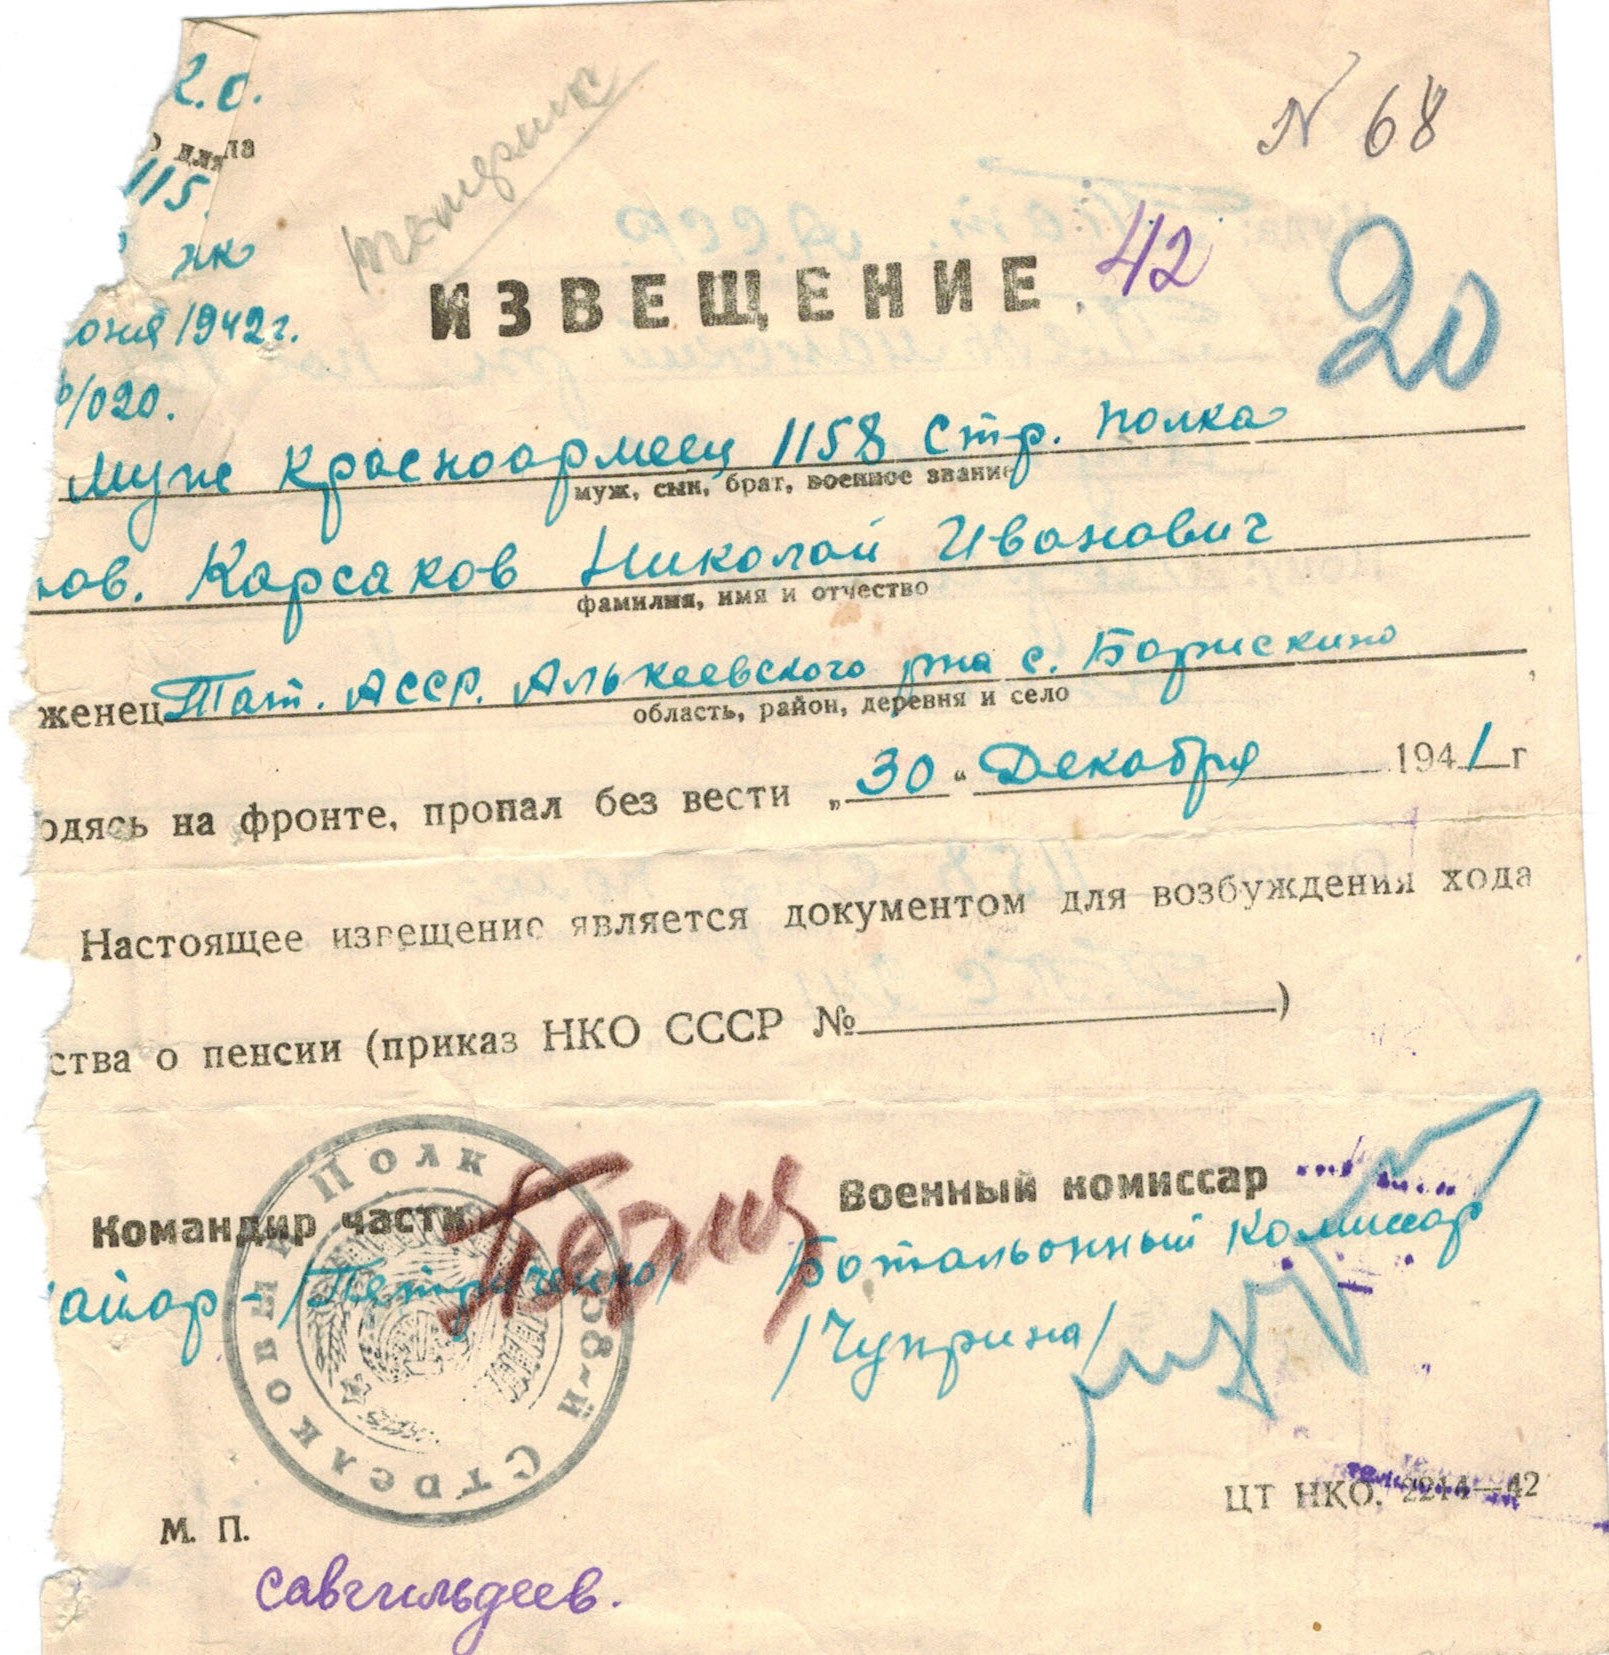 2.0.
для
115
жк
N 68
ИЗВЕЩЕНИЕ. 42
20
юня 1942 г.
/020.
Муж Красноармеец 1158 Стр. полка
муж, сын, брат, военное звание
тов. Карсаков Николай Иванович
фамилия, имя и отчество
женец Тат. АССР. Алькеевского рна с. Борискино
область, район, деревня и село
одясь на фронте, пропал без вести „30“ Декабря 1941 г
Настоящее извещение является документом для возбуждения хода
ства о пенсии (приказ НКО СССР №)
Командир части
Военный комиссар
айор - /Петриченко/
Ботальонный Комиссар
/Чуприна/
58-й Стрелковый Полк
ЦТ НКО. 2214—42
М. П.
Савгильдеев.